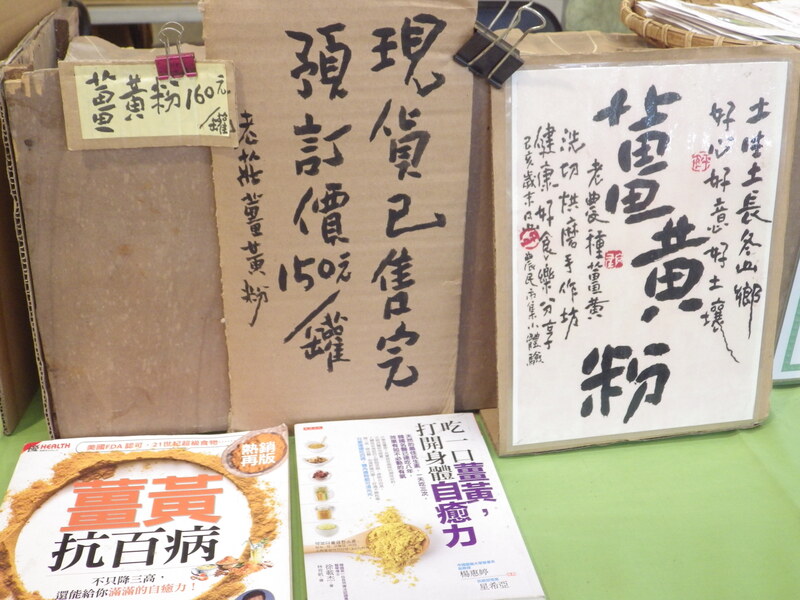 薑黃粉160元/罐
現貨已售完
預訂價150元/罐
老農薑黃粉
土生土長冬山鄉
好心好意好土壤
薑黃粉
老農種薑黃
洗切烘磨手作坊
健康好食樂分享
農民市集小體驗
HEALTH
美國FDA認可，21世紀超級食物
熱銷再版
薑黃
抗百病
不只降三高，
還能給你滿滿的自癒力！
吃一口薑黃，
打開身體
自癒力
楊惠婷